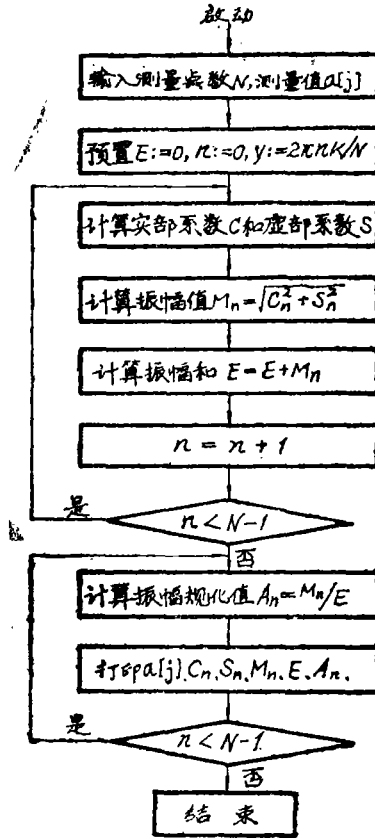 启动
输入测量点数N,测量值a[j]
预置E:=0, n:=0, y:=2πnK/N
计算实部系数C和虚部系数S
计算振幅值Mn=√Cn²+Sn²
计算振幅和 E=E+Mn
n = n + 1
是
n < N-1
否
计算振幅规化值An=Mn/E
打印a[j].Cn.Sn.Mn.E.An.
是
n < N-1.
否
结 束